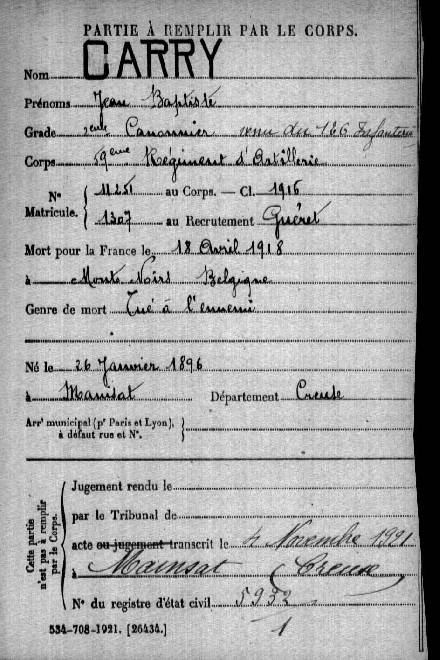 PARTIE À REMPLIR PAR LE CORPS.
Nom CARRY
Prénoms Jean Baptiste
Grade 2eme Canonnier venu du 126 Infanterie
Corps 59eme Régiment d'Artillerie
N° Matricule. { 11251 au Corps. — Cl. 1916
1307 au Recrutement Guéret
Mort pour la France le 18 Avril 1918
à Monts Noirs Belgique
Genre de mort Tué à l'ennemi
Né le 26 Janvier 1896
à Mainsat Département Creuse
Arrt municipal (pr Paris et Lyon), à défaut rue et N°. }
Cette partie n'est pas à remplir par le Corps.
Jugement rendu le
par le Tribunal de
acte ou jugement transcrit le 4 Novembre 1921
à Mainsat (Creuse)
N° du registre d'état civil 5932
1
534-708-1921. [26434.]